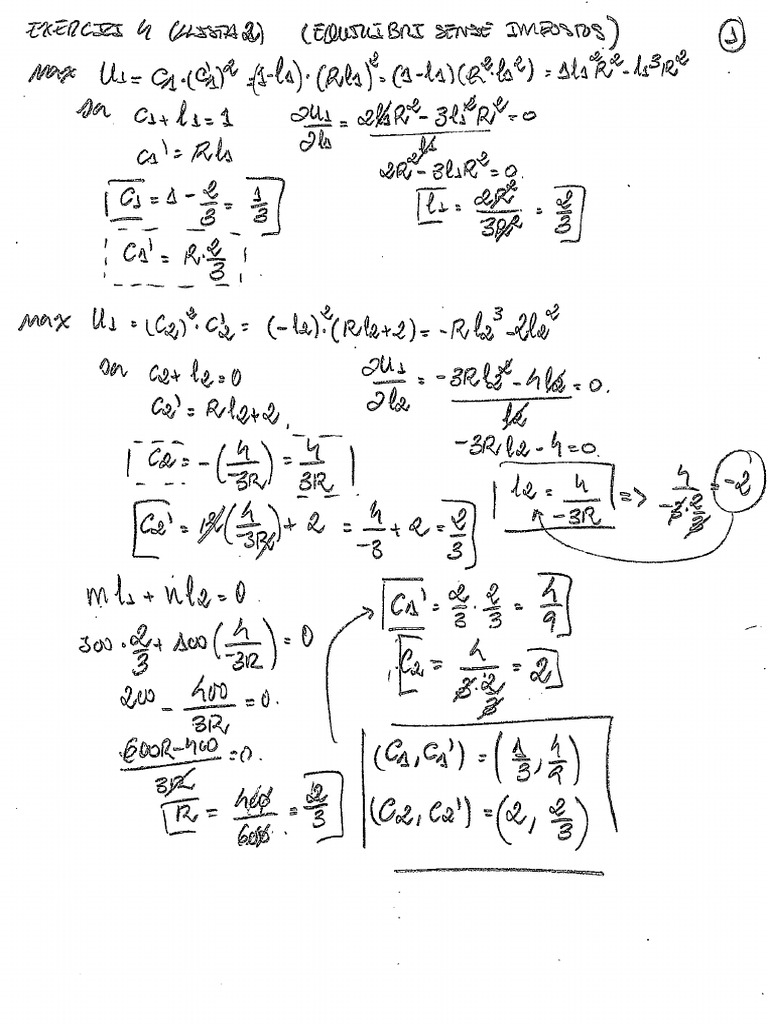 EXERCICI 4 (LLISTA 2) (EQUILIBRI SENSE IMPOSTOS) 1
max U1 = C1·(C1')² = (1-l1)·(Rl1)² = (1-l1)(R²·l1²) = 1l1²R² - l1³R²
sa C1 + l1 = 1 ∂U1/∂l1 = (2l1R² - 3l1²R²)/l1 = 0
C1' = Rl1 2R² - 3l1R² = 0
C1 = 1 - 2/3 = 1/3 l1 = 2R²/3R² = 2/3
C1' = R·2/3
max U1 = (C2)²·C2' = (-l2)²·(Rl2+2) = -Rl2³ - 2l2²
sa C2 + l2 = 0 ∂U1/∂l2 = (-3Rl2² - 4l2)/l2 = 0.
C2' = Rl2+2, -3Rl2 - 4 = 0.
C2 = -(4/-3R) = 4/3R l2 = 4/-3R => 4/(-3·2/3) = -2
C2' = R(4/-3R) + 2 = 4/-3 + 2 = 2/3
ml1 + nl2 = 0 C1' = 2/3 · 2/3 = 4/9
300·2/3 + 100(4/-3R) = 0 C2 = 4/(3·2/3) = 2
200 - 400/3R = 0.
(600R-400)/3R = 0. (C1, C1') = (1/3, 4/9)
R = 400/600 = 2/3 (C2, C2') = (2, 2/3)